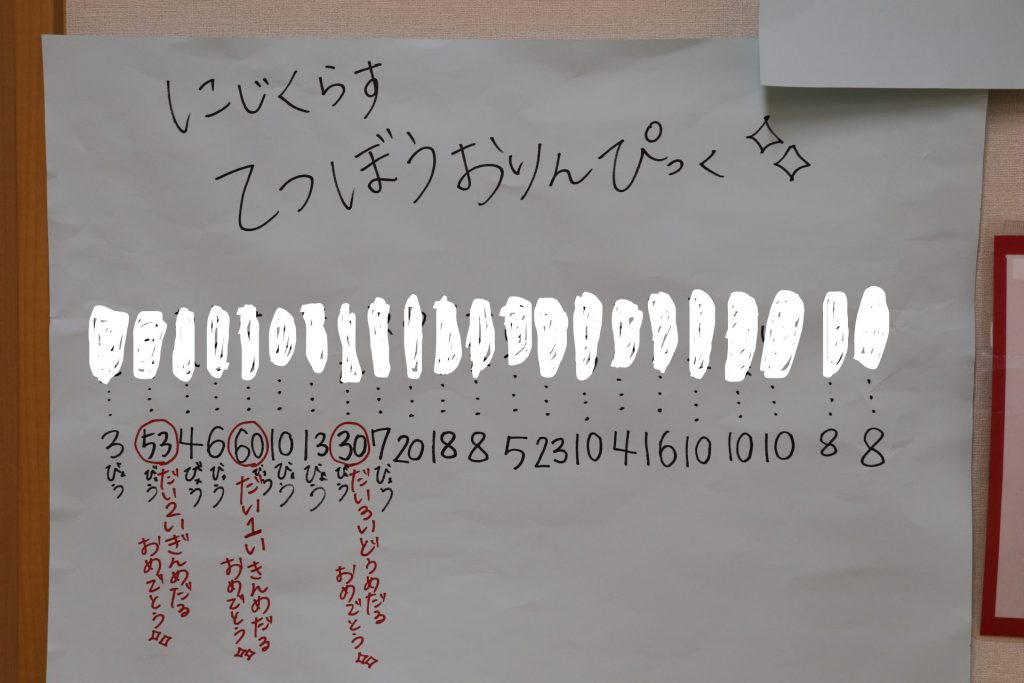 にじくらす
てつぼうおりんぴっく
3 53 4 6 60 10 13 30 7 20 18 8 5 23 10 4 16 10 10 10 8 8
びょう びょう びょう びょう びょう びょう びょう びょう びょう
だい2いぎんめだる
おめでとう
だい1いきんめだる
おめでとう
だい3いどうめだる
おめでとう